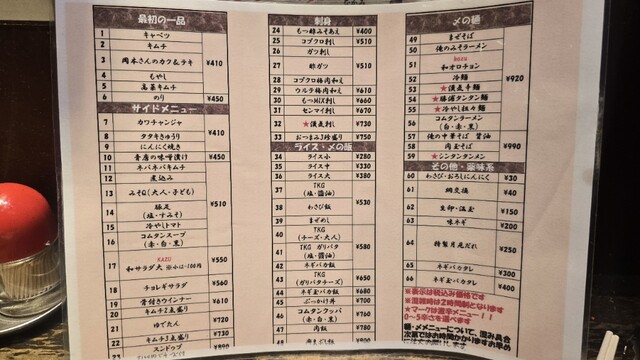 最初の一品
1 キャベツ
2 キムチ
3 岡本さんのカツ&テキ ¥410
4 もやし
5 高菜キムチ
6 のり ¥450
サイドメニュー
7 カワチャンジャ
8 タタキきゅうり ¥410
9 にんにく焼き
10 青唐の味噌漬け ¥450
11 ネバネバキムチ
12 煮込み
13 みそQ(大人・子ども) ¥510
14 豚足
(塩・すみそ)
15 冷やしトマト
16 コムタンスープ
(赤・白・黒)
17 KAZU
和サラダ大 ※小は-100円 ¥550
18 チョレギサラダ ¥560
19 骨付きウインナー ¥610
20 キムチ2点盛り ¥720
21 ゆでたん ¥720
22 キムチ3点盛り ¥730
23 スンドゥブ ¥990
刺身
24 もつ酢みそあえ ¥400
25 コブクロ刺し ¥510
26 ガツ刺し
27 酢ガツ
28 コブクロ梅肉和え
29 ウルテ梅肉和え ¥610
30 もつMIX刺し ¥660
31 センマイ刺し ¥670
32 ★漢気刺し ¥730
33 おつまみ3珍盛り ¥750
ライス・〆の飯
34 ライス小 ¥280
35 ライス中 ¥330
36 ライス大 ¥380
37 TKG
(塩・醤油) ¥530
38 わさび飯
39 まぜめし
40 TKG
(チーズ・大人) ¥580
41 TKG ガリバタ
(塩・醤油)
42 ネギバカ飯
43 TKG
(ガリバタチーズ) ¥650
44 ネギ玉バカ飯 ¥680
45 ぶっかけ丼 ¥700
46 コムタンクッパ
(赤・白・黒) ¥760
47 肉飯 ¥780
〆の麺
49 まぜそば
50 俺のみそラーメン
51 kazu
和オロチョン
52 冷麺 ¥920
53 ★漢気辛麺
54 ★勝浦タンタン麺
55 ★冷やし担々麺
56 コムタンラーメン
(白・赤・黒)
57 俺の中華そば 醤油
58 肉玉そば ¥990
59 ★シンタンタンメン
その他・薬味系
60 わさび・おろしにんにく ¥30
61 網交換 ¥40
62 生卵・温玉 ¥150
63 味ネギ ¥200
64 特製月見だれ ¥250
65 ネギバカタレ ¥300
66 ネギ玉バカタレ ¥400
※表示は税込み価格です
※混雑時は2時間制となります
★マークは激辛メニュー!!
0~5辛さを選べます
麺・〆メニューについて、混み具合
次第ではお時間かかりますお早め